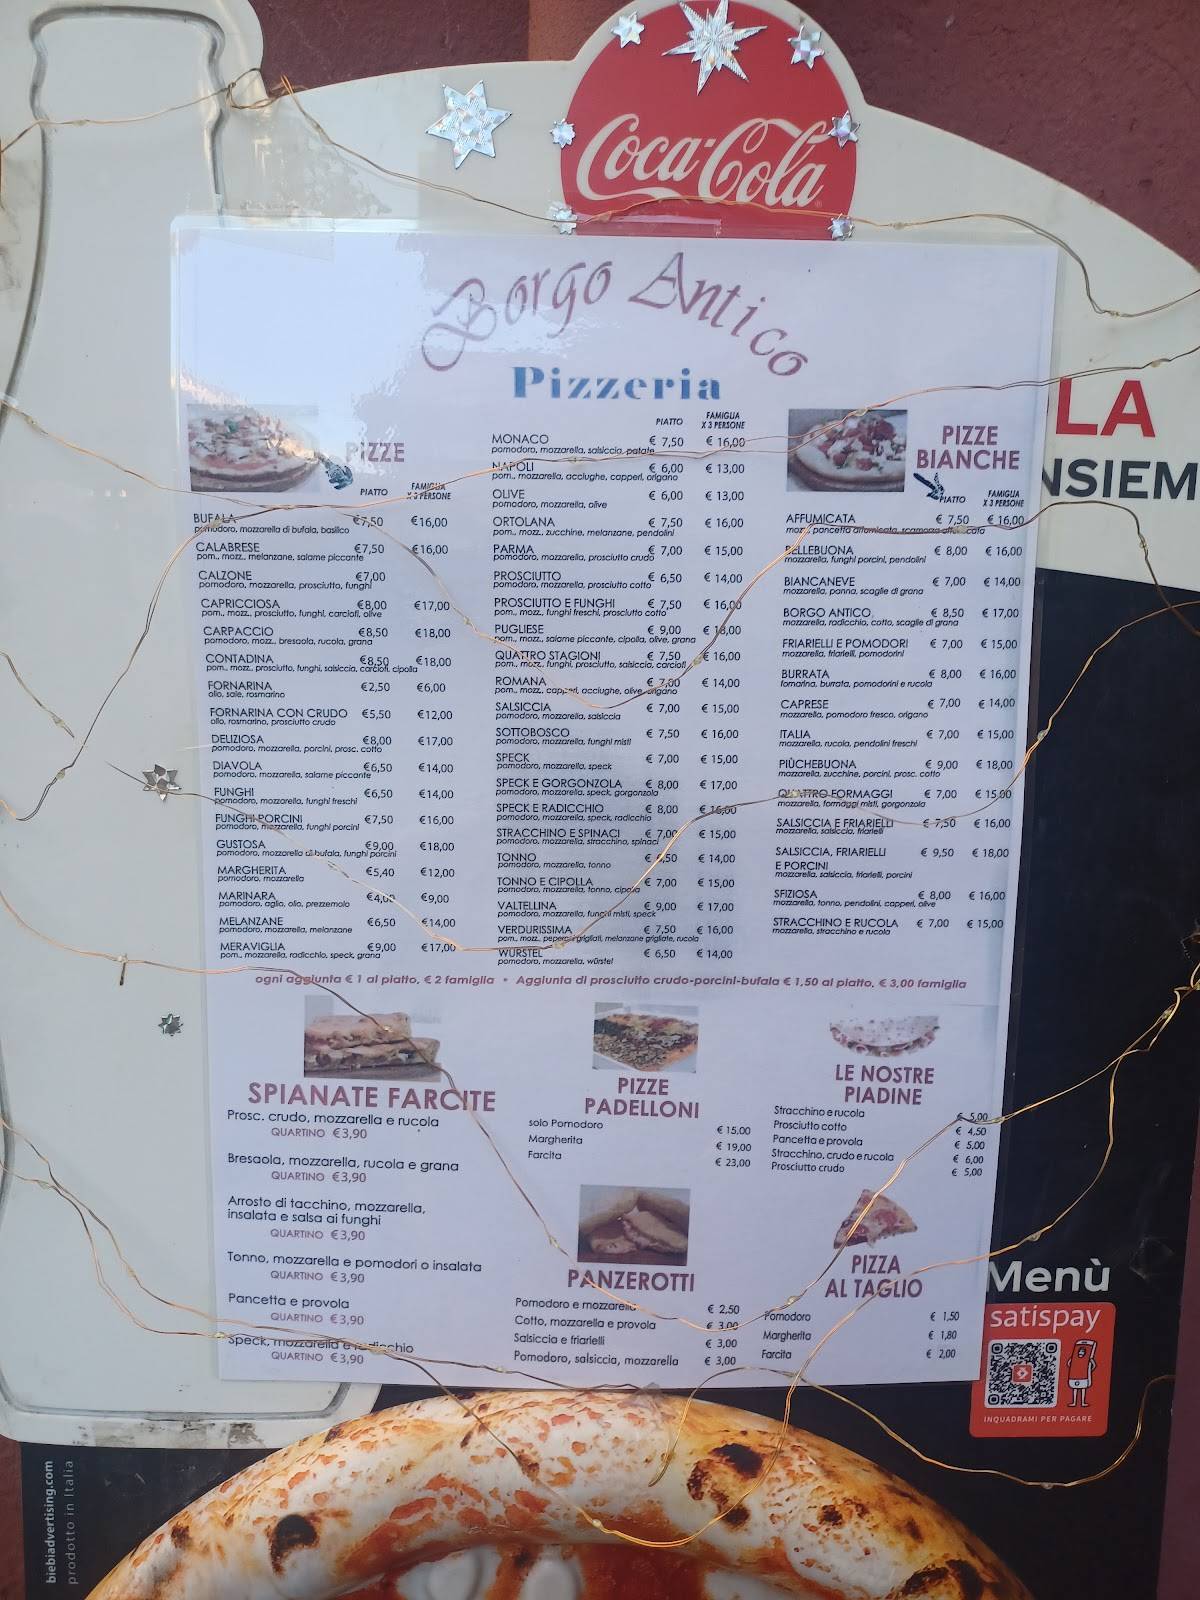 Coca-Cola
Borgo Antico
Pizzeria
PIZZE
PIATTO FAMIGLIA X 3 PERSONE
BUFALA €7,50 €16,00
pomodoro, mozzarella di bufala, basilico
CALABRESE €7,50 €16,00
pom., mozz., melanzane, salame piccante
CALZONE €7,00
pomodoro, mozzarella, prosciutto, funghi
CAPRICCIOSA €8,00 €17,00
pom., mozz., prosciutto, funghi, carciofi, olive
CARPACCIO €8,50 €18,00
pomodoro, mozz., bresaola, rucola, grana
CONTADINA €8,50 €18,00
pom., mozz., prosciutto, funghi, salsiccia, carciofi, cipolla
FORNARINA €2,50 €6,00
olio, sale, rosmarino
FORNARINA CON CRUDO €5,50 €12,00
olio, rosmarino, prosciutto crudo
DELIZIOSA €8,00 €17,00
pomodoro, mozzarella, porcini, prosc. cotto
DIAVOLA €6,50 €14,00
pomodoro, mozzarella, salame piccante
FUNGHI €6,50 €14,00
pomodoro, mozzarella, funghi freschi
FUNGHI PORCINI €7,50 €16,00
pomodoro, mozzarella, funghi porcini
GUSTOSA €9,00 €18,00
pomodoro, mozzarella di bufala, funghi porcini
MARGHERITA €5,40 €12,00
pomodoro, mozzarella
MARINARA €4,00 €9,00
pomodoro, aglio, olio, prezzemolo
MELANZANE €6,50 €14,00
pomodoro, mozzarella, melanzane
MERAVIGLIA €9,00 €17,00
pom., mozzarella, radicchio, speck, grana
PIATTO FAMIGLIA X 3 PERSONE
MONACO € 7,50 € 16,00
pomodoro, mozzarella, salsiccia, patate
NAPOLI € 6,00 € 13,00
pom., mozzarella, acciughe, capperi, origano
OLIVE € 6,00 € 13,00
pomodoro, mozzarella, olive
ORTOLANA € 7,50 € 16,00
pom., mozz., zucchine, melanzane, pendolini
PARMA € 7,00 € 15,00
pomodoro, mozzarella, prosciutto crudo
PROSCIUTTO € 6,50 € 14,00
pomodoro, mozzarella, prosciutto cotto
PROSCIUTTO E FUNGHI € 7,50 € 16,00
pom., mozz., funghi freschi, prosciutto cotto
PUGLIESE € 9,00 € 18,00
pom., mozz., salame piccante, cipolla, olive, grana
QUATTRO STAGIONI € 7,50 € 16,00
pom., mozz., funghi, prosciutto, salsiccia, carciofi
ROMANA € 7,00 € 14,00
pom., mozz., capperi, acciughe, olive, origano
SALSICCIA € 7,00 € 15,00
pomodoro, mozzarella, salsiccia
SOTTOBOSCO € 7,50 € 16,00
pomodoro, mozzarella, funghi misti
SPECK € 7,00 € 15,00
pomodoro, mozzarella, speck
SPECK E GORGONZOLA € 8,00 € 17,00
pomodoro, mozzarella, speck, gorgonzola
SPECK E RADICCHIO € 8,00 € 16,00
pomodoro, mozzarella, speck, radicchio
STRACCHINO E SPINACI € 7,00 € 15,00
pomodoro, mozzarella, stracchino, spinaci
TONNO € 6,50 € 14,00
pomodoro, mozzarella, tonno
TONNO E CIPOLLA € 7,00 € 15,00
pomodoro, mozzarella, tonno, cipolla
VALTELLINA € 9,00 € 17,00
pomodoro, mozzarella, funghi misti, speck
VERDURISSIMA € 7,50 € 16,00
pom., mozz., peperoni grigliati, melanzane grigliate, rucola
WÜRSTEL € 6,50 € 14,00
pomodoro, mozzarella, würstel
PIZZE
BIANCHE
PIATTO FAMIGLIA X 3 PERSONE
AFFUMICATA € 7,50 € 16,00
mozz., pancetta affumicata, scamorza affumicata
BELLEBUONA € 8,00 € 16,00
mozzarella, funghi porcini, pendolini
BIANCANEVE € 7,00 € 14,00
mozzarella, panna, scaglie di grana
BORGO ANTICO € 8,50 € 17,00
mozzarella, radicchio, cotto, scaglie di grana
FRIARIELLI E POMODORI € 7,00 € 15,00
mozzarella, friarielli, pomodorini
BURRATA € 8,00 € 16,00
fornarina, burrata, pomodorini e rucola
CAPRESE € 7,00 € 14,00
mozzarella, pomodoro fresco, origano
ITALIA € 7,00 € 15,00
mozzarella, rucola, pendolini freschi
PIÙCHEBUONA € 9,00 € 18,00
mozzarella, zucchine, porcini, prosc. cotto
QUATTRO FORMAGGI € 7,00 € 15,00
mozzarella, formaggi misti, gorgonzola
SALSICCIA E FRIARIELLI € 7,50 € 16,00
mozzarella, salsiccia, friarielli
SALSICCIA, FRIARIELLI € 9,50 € 18,00
E PORCINI
mozzarella, salsiccia, friarielli, porcini
SFIZIOSA € 8,00 € 16,00
mozzarella, tonno, pendolini, capperi, olive
STRACCHINO E RUCOLA € 7,00 € 15,00
mozzarella, stracchino e rucola
ogni aggiunta € 1 al piatto, € 2 famiglia • Aggiunta di prosciutto crudo-porcini-bufala € 1,50 al piatto, € 3,00 famiglia
SPIANATE FARCITE
Prosc. crudo, mozzarella e rucola
QUARTINO €3,90
Bresaola, mozzarella, rucola e grana
QUARTINO €3,90
Arrosto di tacchino, mozzarella,
insalata e salsa ai funghi
QUARTINO €3,90
Tonno, mozzarella e pomodori o insalata
QUARTINO €3,90
Pancetta e provola
QUARTINO €3,90
Speck, mozzarella e radicchio
QUARTINO €3,90
PIZZE
PADELLONI
solo Pomodoro € 15,00
Margherita € 19,00
Farcita € 23,00
PANZEROTTI
Pomodoro e mozzarella € 2,50
Cotto, mozzarella e provola € 3,00
Salsiccia e friarielli € 3,00
Pomodoro, salsiccia, mozzarella € 3,00
LE NOSTRE
PIADINE
Stracchino e rucola € 5,00
Prosciutto cotto € 4,50
Pancetta e provola € 5,00
Stracchino, crudo e rucola € 6,00
Prosciutto crudo € 5,00
PIZZA
AL TAGLIO
Pomodoro € 1,50
Margherita € 1,80
Farcita € 2,00
LA
NSIEM
Menù
satispay
INQUADRAMI PER PAGARE
biebiadvertising.com
prodotto in Italia